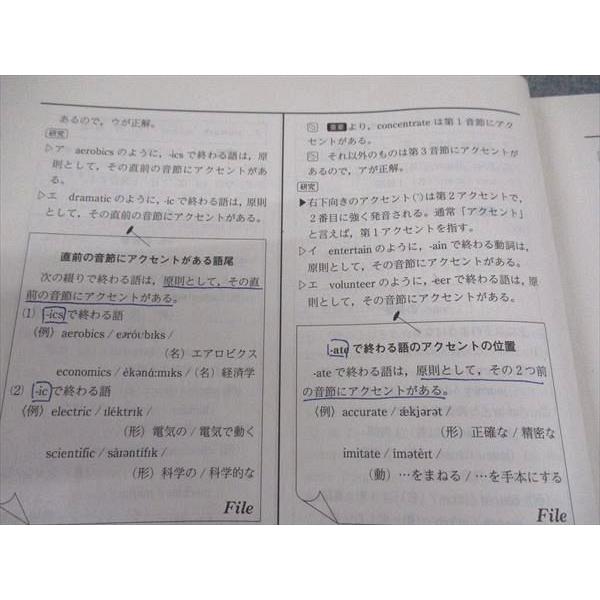 あるので，ウが正解。
研究
▷ア aerobics のように，-ics で終わる語は，原
則として，その直前の音節にアクセントがあ
る。
▷エ dramatic のように，-ic で終わる語は，原則
として，その直前の音節にアクセントがある。
直前の音節にアクセントがある語尾
次の綴りで終わる語は，原則として，その直
前の音節にアクセントがある。
(1) -ics で終わる語
〈例〉aerobics / eəróubɪks /
(名) エアロビクス
economics / èkənɑ́:mɪks / (名) 経済学
(2) -ic で終わる語
〈例〉electric / ɪléktrɪk /
(形) 電気の / 電気で動く
scientific / sàɪəntífɪk /
(形) 科学の / 科学的な
File
重要 より，concentrate は第 1 音節にアク
セントがある。
それ以外のものは第 3 音節にアクセントが
あるので，アが正解。
研究
▶右下向きのアクセント(`)は第 2 アクセントで，
2 番目に強く発音される。通常「アクセント」
と言えば，第 1 アクセントを指す。
▷イ entertain のように，-ain で終わる動詞は，
原則として，その音節にアクセントがある。
▷エ volunteer のように，-eer で終わる語は，原
則として，その音節にアクセントがある。
-ate で終わる語のアクセントの位置
-ate で終わる語は，原則として，その 2 つ前
の音節にアクセントがある。
〈例〉accurate / ǽkjərət /
(形) 正確な / 精密な
imitate / ímətèɪt /
(動) …をまねる / …を手本にする
File